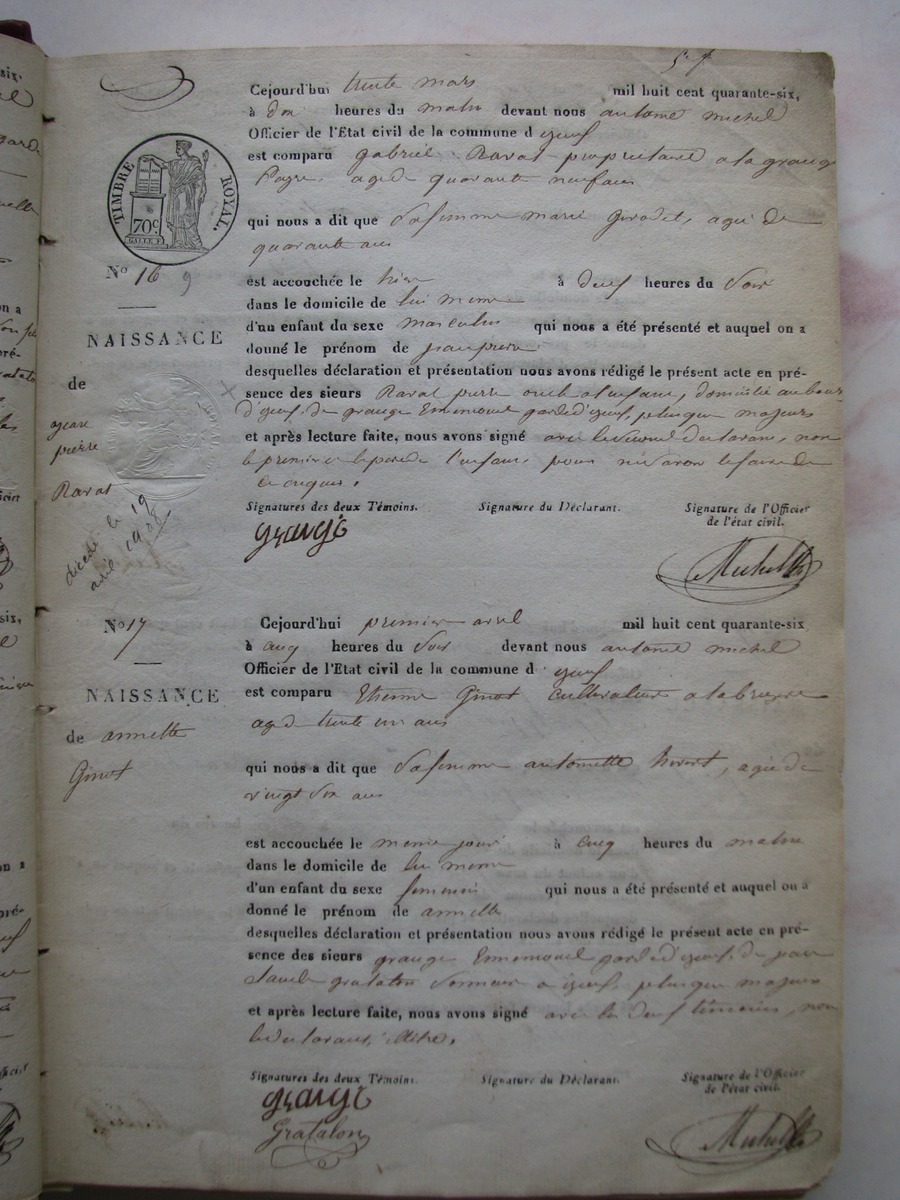 TIMBRE ROYAL.
70c.
No 16 9
NAISSANCE
de
jean
pierre
Ravat
décédé le 19
avril
Cejourd'hui trente mars mil huit cent quarante-six,
à dix heures du matin devant nous antoine michel
Officier de l'Etat civil de la commune d
est comparu gabriel Ravat propriétaire a la grange
agé de quarante neuf ans
qui nous a dit que Sa femme marie girodet, agée de
quarante ans
est accouchée le hier à deux heures du Soir
dans le domicile de lui meme
d'un enfant du sexe masculin qui nous a été présenté et auquel on a
donné le prénom de jean pierre
desquelles déclaration et présentation nous avons rédigé le présent acte en pré-
sence des sieurs Ravat pierre oncle a l'enfant, domicilié au bourg
d'izieux, de grange Ennemond garde d'izieux, plus que majeurs
et après lecture faite, nous avons signé avec le Second des temoins, non
le premier ni le pere de l'enfant pour ne savoir le faire de
ce requis.
Signatures des deux Témoins. Signature du Déclarant. Signature de l'Officier
de l'état civil.
grange
Michel
No 17
NAISSANCE
de annette
Ginot
Cejourd'hui premier avril mil huit cent quarante-six
à cinq heures du Soir devant nous antoine michel
Officier de l'Etat civil de la commune d izieux
est comparu Etienne Ginot cultivateur a la bruyere
agé de trente un ans
qui nous a dit que Sa femme antoinette , agée de
vingt Six ans
est accouchée le meme jour à cinq heures du matin
dans le domicile de lui meme
d'un enfant du sexe feminin qui nous a été présenté et auquel on a
donné le prénom de annette
desquelles déclaration et présentation nous avons rédigé le présent acte en pré-
sence des sieurs grange Ennemond garde d'izieux, de jean
claude gratalon a izieux, plus que majeurs
et après lecture faite, nous avons signé avec les deux témoins, non
le declarant, illitré.
Signatures des deux Témoins. Signature du Déclarant. Signature de l'Officier
de l'état civil.
grange
Gratalon
Michel